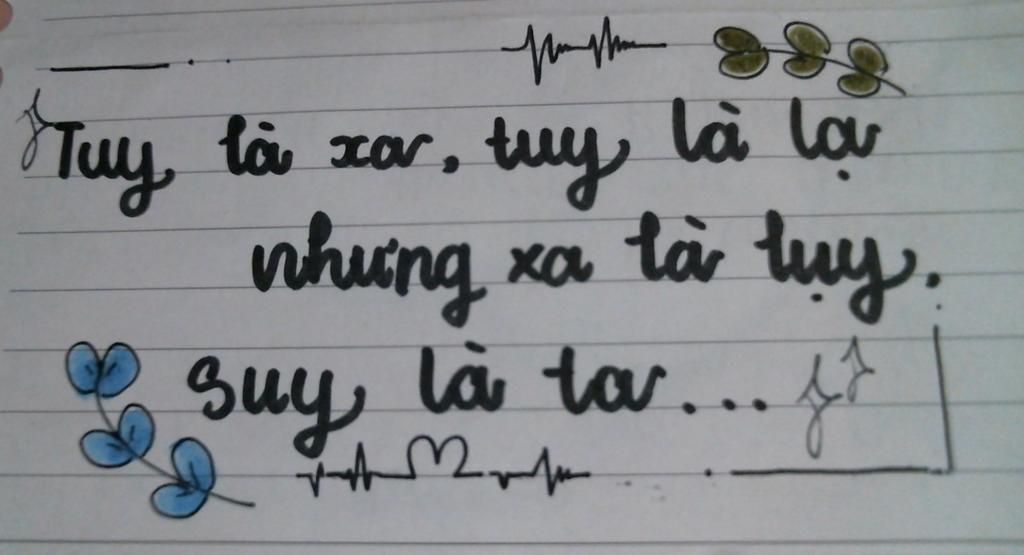 Tuy là xa, tuy là lạ
nhưng xa là tụy.
Suy là ta...